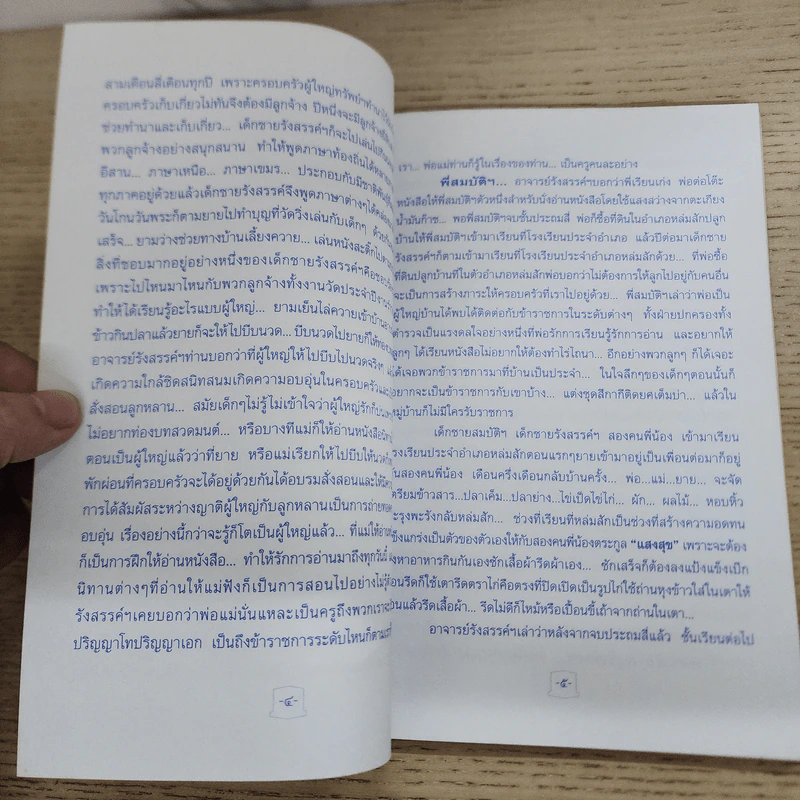 สามเดือนสี่เดือนทุกปี เพราะครอบครัวผู้ใหญ่ทรัพย์ทำนา
ครอบครัวเก็บเกี่ยวไม่ทันจึงต้องมีลูกจ้าง ปีหนึ่งจะมีลูกจ้าง
ช่วยทำนาและเก็บเกี่ยว... เด็กชายรังสรรค์ฯก็จะไปเล่น
พวกลูกจ้างอย่างสนุกสนาน ทำให้พูดภาษาท้องถิ่นได้
อีสาน... ภาษาเหนือ... ภาษาเขมร... ประกอบกับมีชาติพันธุ์
ทุกภาคอยู่ด้วยแล้วเด็กชายรังสรรค์จึงพูดภาษาต่างๆได้
วันโกนวันพระก็ตามยายไปทำบุญที่วัดวิ่งเล่นกับเด็กๆ
เสร็จ... ยามว่างช่วยทางบ้านเลี้ยงควาย... เล่นหนังสะติ๊ก
สิ่งที่ชอบมากอยู่อย่างหนึ่งของเด็กชายรังสรรค์ฯคือ
เพราะไปไหนมาไหนกับพวกลูกจ้างทั้งงานวัดประจำปี
ทำให้ได้เรียนรู้อะไรแบบผู้ใหญ่... ยามเย็นไล่ควายเข้าบ้าน
ข้าวกินปลาแล้วยายก็จะให้ไปบีบนวด... บีบนวดไปยายก็ให้
อาจารย์รังสรรค์ฯท่านบอกว่าที่ผู้ใหญ่ให้ไปบีบไปนวดจริงๆ
เกิดความใกล้ชิดสนิทสนมเกิดความอบอุ่นในครอบครัวและ
สั่งสอนลูกหลาน... สมัยเด็กๆไม่รู้ไม่เข้าใจว่าผู้ใหญ่รัก
ไม่อยากท่องบทสวดมนต์... หรือบางทีแม่ก็ให้อ่านหนังสือ
ตอนเป็นผู้ใหญ่แล้วว่าที่ยาย หรือแม่เรียกให้ไปบีบให้นวด
พักผ่อนที่ครอบครัวจะได้อยู่ด้วยกันได้อบรมสั่งสอนและ
การได้สัมผัสระหว่างญาติผู้ใหญ่กับลูกหลานเป็นการถ่ายทอด
อบอุ่น เรื่องอย่างนี้กว่าจะรู้ก็โตเป็นผู้ใหญ่แล้ว... ที่แม่ให้อ่าน
ก็เป็นการฝึกให้อ่านหนังสือ... ทำให้รักการอ่านมาถึงทุกวันนี้
นิทานต่างๆที่อ่านให้แม่ฟังก็เป็นการสอนไปอย่าง
รังสรรค์ฯเคยบอกว่าพ่อแม่นั่นแหละเป็นครูถึงพวกเราจะ
ปริญญาโทปริญญาเอก เป็นถึงข้าราชการระดับไหนก็ตาม
-๔-
เรา... พ่อแม่ท่านก็รู้ในเรื่องของท่าน... เป็นครูคนละอย่าง
พี่สมบัติฯ... อาจารย์รังสรรค์ฯบอกว่าพี่เรียนเก่ง พ่อต่อโต๊ะ
หนังสือให้พี่สมบัติฯตัวหนึ่งสำหรับนั่งอ่านหนังสือโดยใช้แสงสว่างจากตะเกียง
น้ำมันก๊าซ... พอพี่สมบัติฯจบชั้นประถมสี่ พ่อก็ซื้อที่ดินในอำเภอหล่มสักปลูก
บ้านให้พี่สมบัติฯเข้ามาเรียนที่โรงเรียนประจำอำเภอ แล้วปีต่อมาเด็กชาย
รังสรรค์ฯก็ตามเข้ามาเรียนที่โรงเรียนประจำอำเภอหล่มสักด้วย... ที่พ่อซื้อ
ที่ดินปลูกบ้านที่ในตัวอำเภอหล่มสักพ่อบอกว่าไม่ต้องการให้ลูกไปอยู่กับคนอื่น
จะเป็นการสร้างภาระให้ครอบครัวที่เราไปอยู่ด้วย... พี่สมบัติฯเล่าว่าพ่อเป็น
ผู้ใหญ่บ้านได้พบได้ติดต่อกับข้าราชการในระดับต่างๆ ทั้งฝ่ายปกครองทั้ง
ตำรวจเป็นแรงดลใจอย่างหนึ่งที่พ่อรักการเรียนรู้รักการอ่าน และอยากให้
ลูกๆ ได้เรียนหนังสือไม่อยากให้ต้องทำไร่ไถนา... อีกอย่างพวกลูกๆ ก็ได้เจอ
ได้เจอพวกข้าราชการมาที่บ้านเป็นประจำ... ในใจลึกๆของเด็กๆตอนนั้นก็
อยากจะเป็นข้าราชการกับเขาบ้าง... แต่งชุดสีกากีติดยศเต็มบ่า... แล้วใน
หมู่บ้านก็ไม่มีใครรับราชการ
เด็กชายสมบัติฯ เด็กชายรังสรรค์ฯ สองคนพี่น้อง เข้ามาเรียน
โรงเรียนประจำอำเภอหล่มสักตอนแรกๆยายเข้ามาอยู่เป็นเพื่อนต่อมาก็อยู่
กันสองคนพี่น้อง เดือนครึ่งเดือนกลับบ้านครั้ง... พ่อ...แม่...ยาย... จะจัด
เตรียมข้าวสาร...ปลาเค็ม...ปลาย่าง...ไข่เป็ดไข่ไก่... ผัก... ผลไม้... หอบหิ้ว
กระรุงพะรังกลับหล่มสัก... ช่วงที่เรียนที่หล่มสักเป็นช่วงที่สร้างความอดทน
แข็งแกร่งเป็นตัวของตัวเองให้กับสองคนพี่น้องตระกูล "แสงสุข" เพราะจะต้อง
หาอาหารกินกันเองซักเสื้อผ้ารีดผ้าเอง... ซักเสร็จก็ต้องลงแป้งแข็งเบ็ก
ก่อนรีดก็ใช้เตารีดตราไก่คือตรงที่ปิดเปิดเป็นรูปไก่ใช้ถ่านหุงข้าวใส่ในเตาให้
ร้อนแล้วรีดเสื้อผ้า... รีดไม่ดีก็ไหม้หรือเปื้อนขี้เถ้าจากถ่านในเตา...
อาจารย์รังสรรค์ฯเล่าว่าหลังจากจบประถมสี่แล้ว ชั้นเรียนต่อไป
-๕-